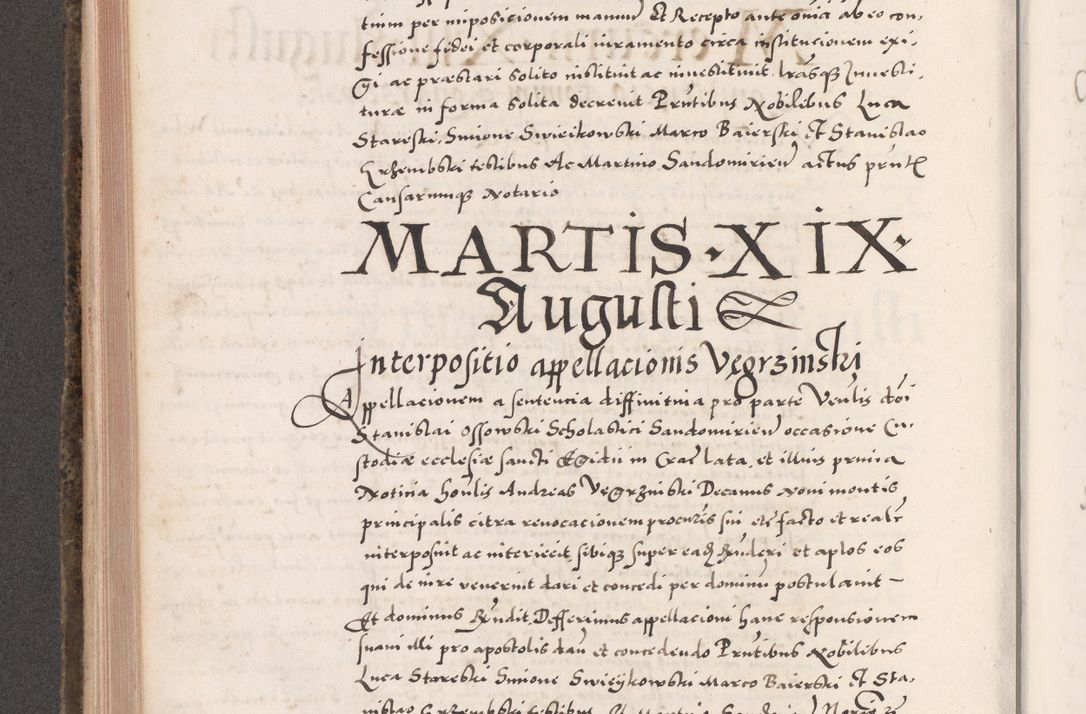 tium per impositionem manuu Et Recepto ante omnia ab eo con,
fessione fidei et corporali iuramento circa institucionem exi,
gi ac præstari solito instituit ac investiuit. lrasqz Investi,
turæ in forma solita decrevit Prntibus Nobilibus Luca
Stareski, Simone Swieikowski Marco Baierski Et Stanislao
Krzembski testibus Ac Martino Sandomirien actus pntis
Causarumqz Notario
MARTIS · XIX ·
Augusti
Interpositio appellacionis Vegrzinski
Appellacionem a sentencia diffinitiua pro parte Venlis doi
Stanislai Ossowski Scholastici Sandomirien occasione Cu,
stodiæ ecclesiæ sancti Egidii in Crac lata, et illius primia
Notitia honlis Andreas Vegrzinski Decanus Novi montis
principalis citra revocacionem procuris sui etc facto et realr
interposuit ac interiecit, sibiqz super eadz Rnderi et aplos eos
qui de iure venerint dari et concedi per dominum postulauit –
Et dominus Rndit, Defferimus appellacioni hanc responsionem
suam illi pro apostolis dan et concedendo Prntibus Nobilibus
Luca Stareski Simone Swieykowski Marco Baierski Et Sta,
nislao Krzembski testibus Et Martino